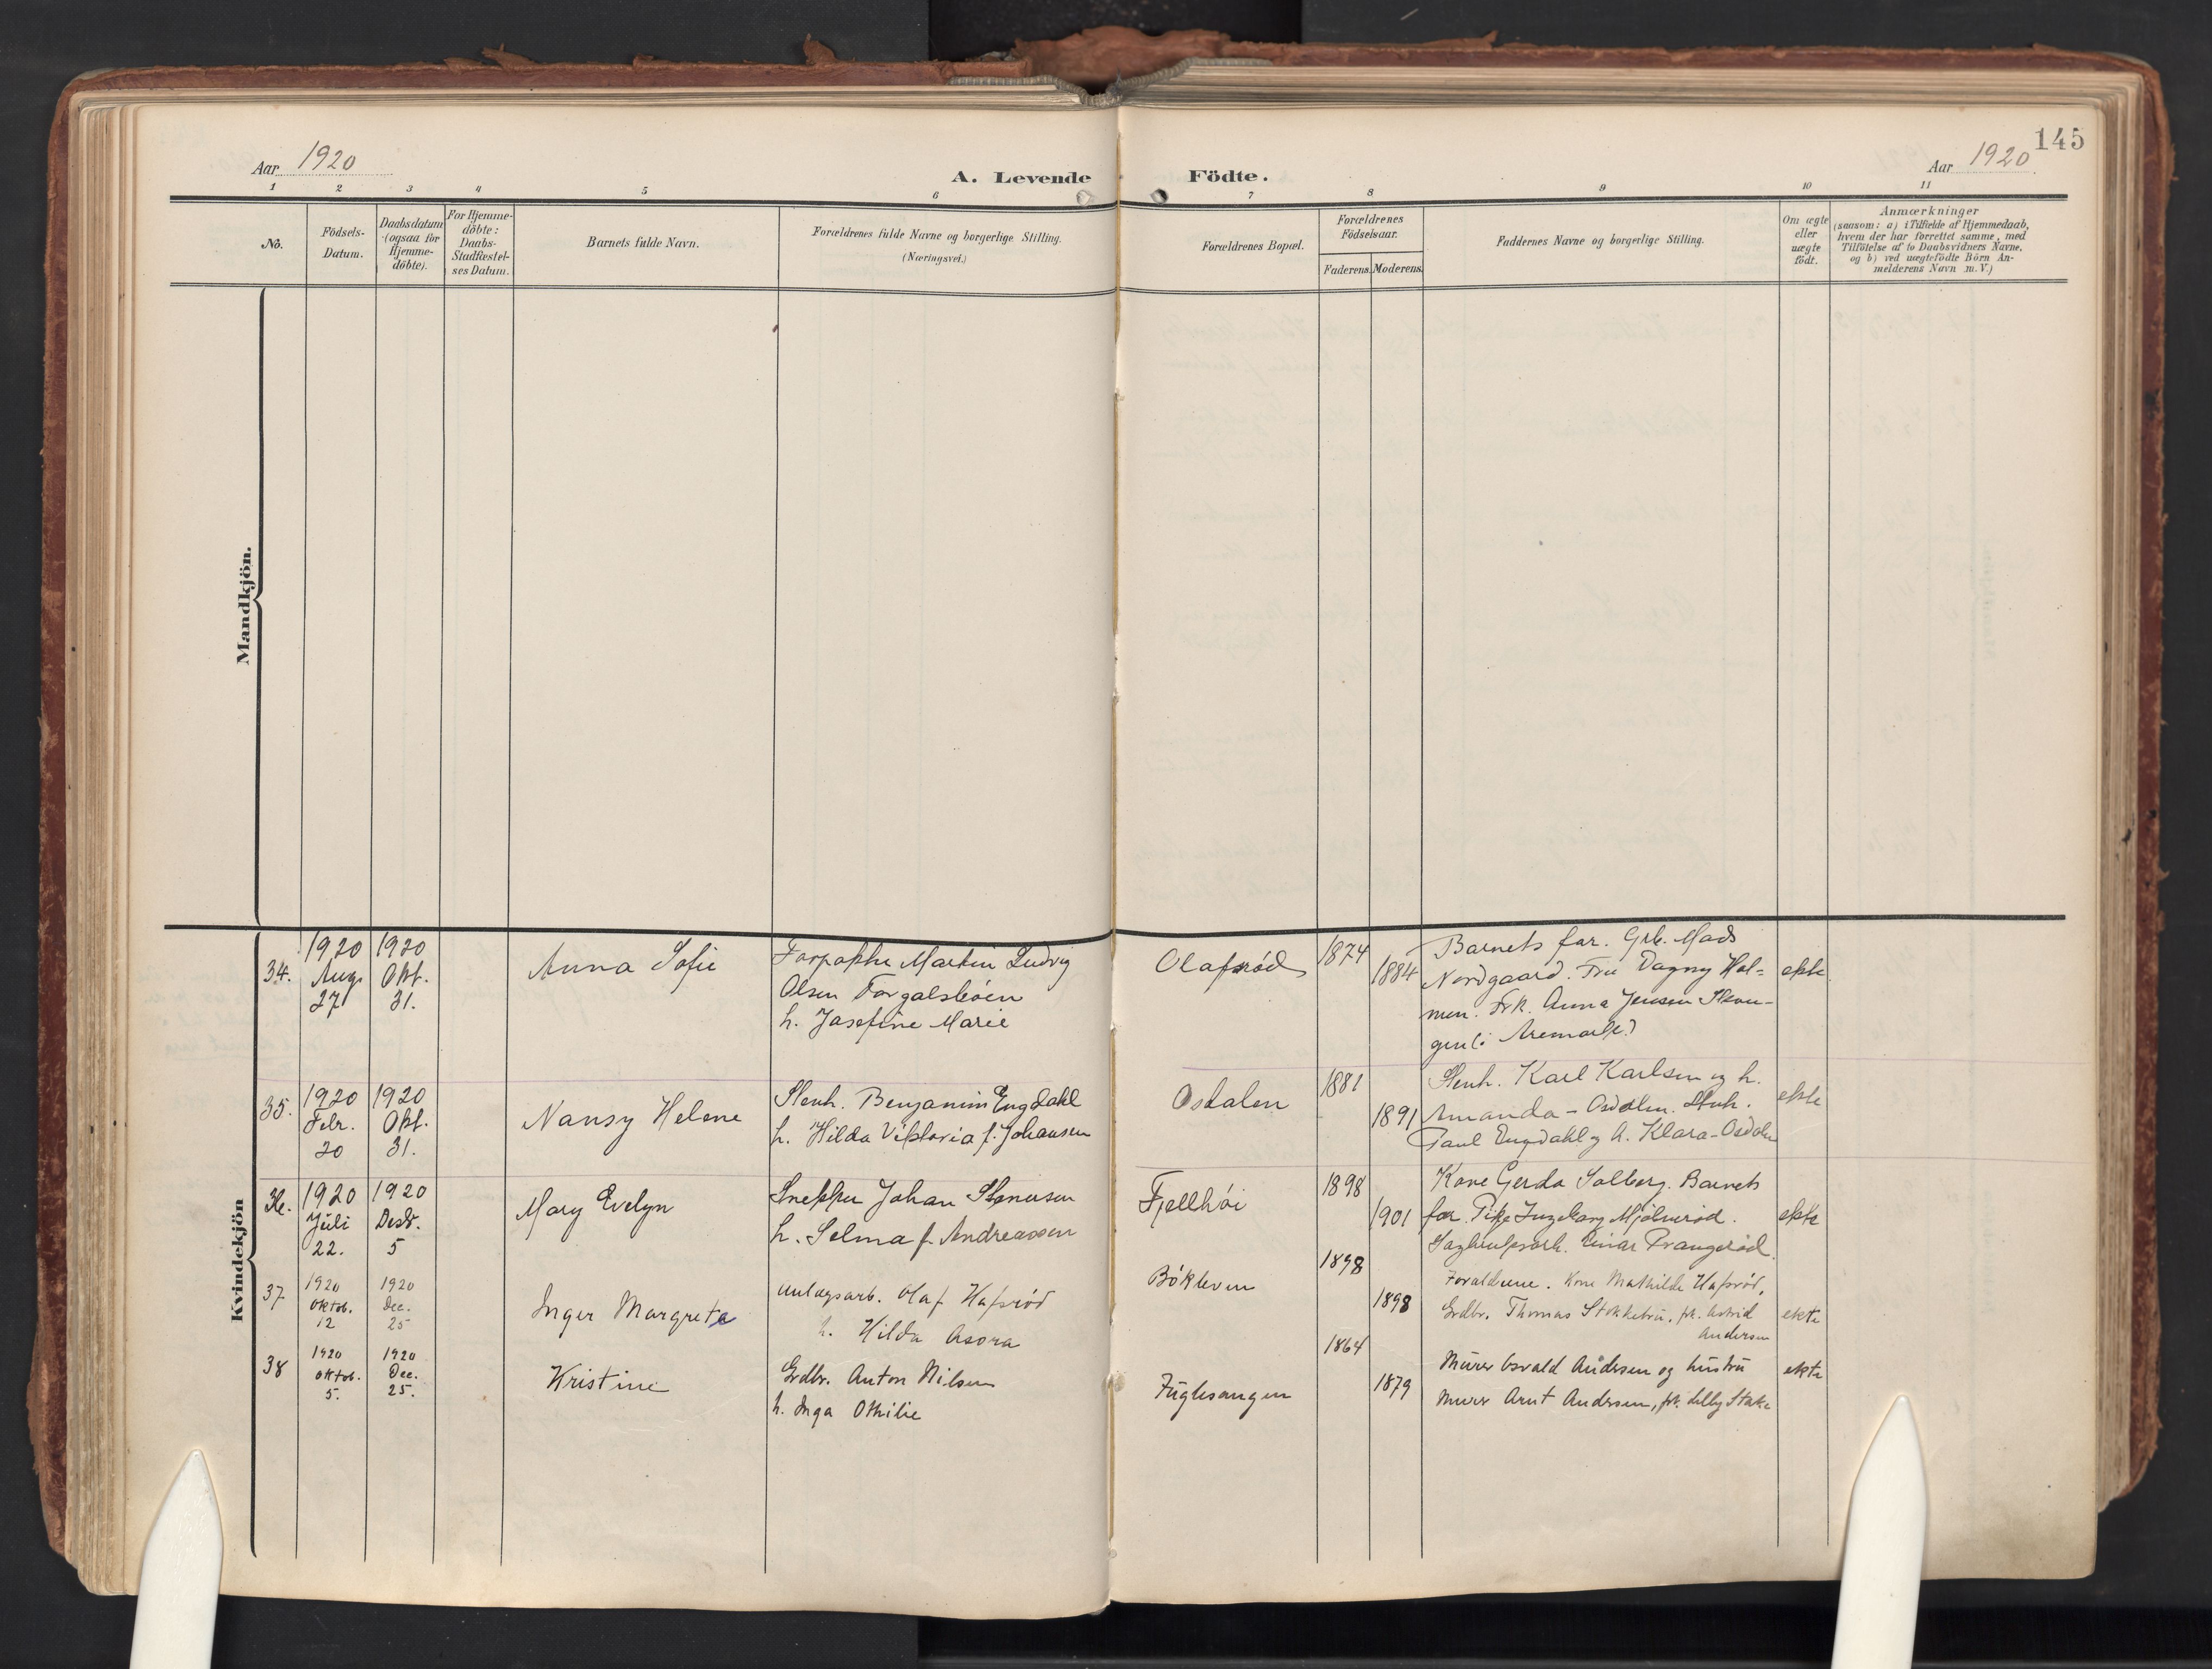 Aar 1920
A. Levende Födte.
Aar 1920
145
1 2 3 4 5 6 7 8 9 10 11
No.
Födsels-
Datum.
Daabsdatum
(ogsaa for
Hjemme-
döbte).
For Hjemme-
döbte:
Daabs-
Stadfestel-
ses Datum.
Barnets fulde Navn.
Forældrenes fulde Navne og borgerlige Stilling.
(Næringsvei.)
Forældrenes Bopæl.
Forældrenes
Födselsaar.
Faderens. Moderens.
Faddernes Navne og borgerlige Stilling.
Om ægte
eller
uægte
födt.
Anmærkninger
(saasom: a) i Tilfælde af Hjemmedaab,
hvem der har forrettet samme, med
Tilföielse af to Daabsvidners Navne,
og b) ved uægtefödte Börn An-
melderens Navn m. V.)
Mandkjön.
Kvindekjön
34.
1920
Aug.
27
1920
Okt.
31.
Anna Sofie
Martin Ludvig
Olsen
h. Josefine Marie
Olafsrød
1874
1884
Barnets far. Grb. Mads
Nordgaard. Fru Dagny Hol-
men. Frk. Anna Jensen
Aremark)
ekte
35.
1920
Febr.
20
1920
Okt.
31.
Nansy Helene
Stenh. Benjamin Engdahl
h. Hilda Viktoria f. Johansen
Osdalen
1881
1891
Stenh. Karl Karlsen og h.
Amanda - Osdalen. Stenh.
Paul Engdahl og h. Klara - Osdalen
ekte
36.
1920
Juli
22.
1920
Desb.
5
Mary Evelyn
Snekker Johan
h. Selma f. Andreassen
Fjellhøi
1898
1901
Kone Gerda Solberg. Barnets
far. Pike Ingeborg Mjølnerød.
Einar Prangerød.
ekte
37
1920
Oktob.
12
1920
Dec.
25
Inger Margrete
anlægsarb. Olaf Hafsrød
h. Hilda Asora
Bøkleven
1898
1898
Foraldrene. Kone Mathilde Hafsrød,
Grdbr. Thomas Stokkebru, frk. Astrid
Andersen
ekte
38
1920
oktob.
5.
1920
Dec.
25.
Kristine
Grdbr. Anton Nilsen
h. Inga Othilie
Fuglesangen
1864
1879
Murer Osvald Andersen og hustru
Murer Arnt Andersen, frk. Lilly Stake
ekte